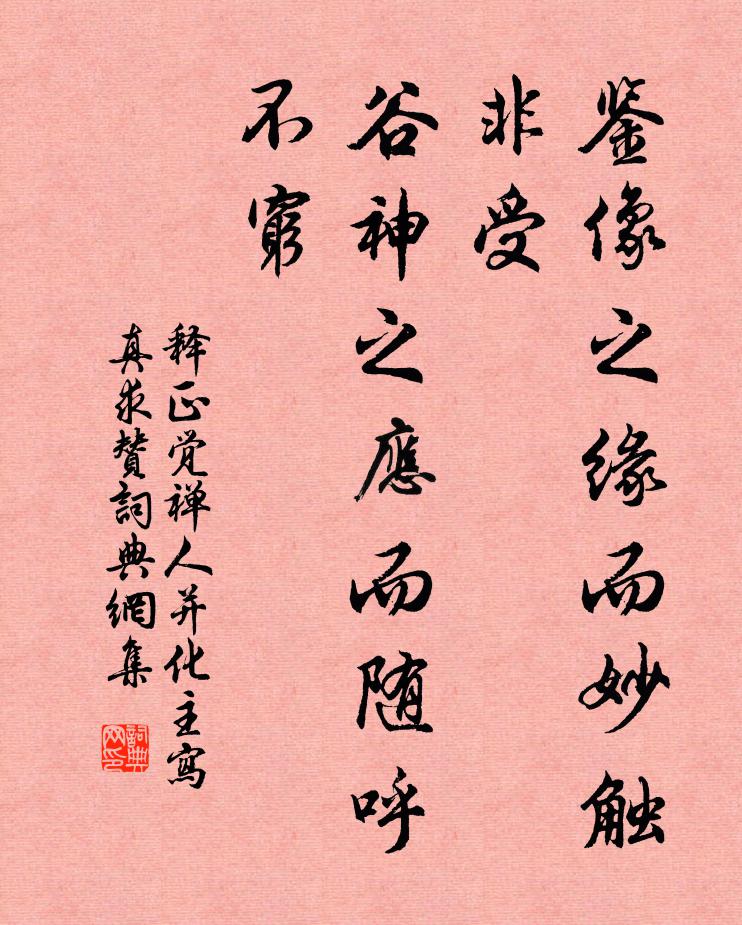 鉴像之缘而妙触
非受
谷神之應而随呼
不窮
释正觉禅人并化主寫
真求贊詞典網集
詞典网印